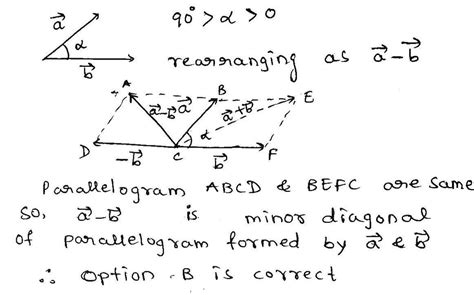 a⃗ α b⃗
90° > α > 0
rearranging as a⃗-b⃗
A B E
a⃗-b⃗ a⃗ a⃗+b⃗
α
D -b⃗ C b⃗ F
Parallelogram ABCD & BEFC are same
so, a⃗-b⃗ is minor diagonal
of parallelogram formed by a⃗ & b⃗
∴ option -B is correct